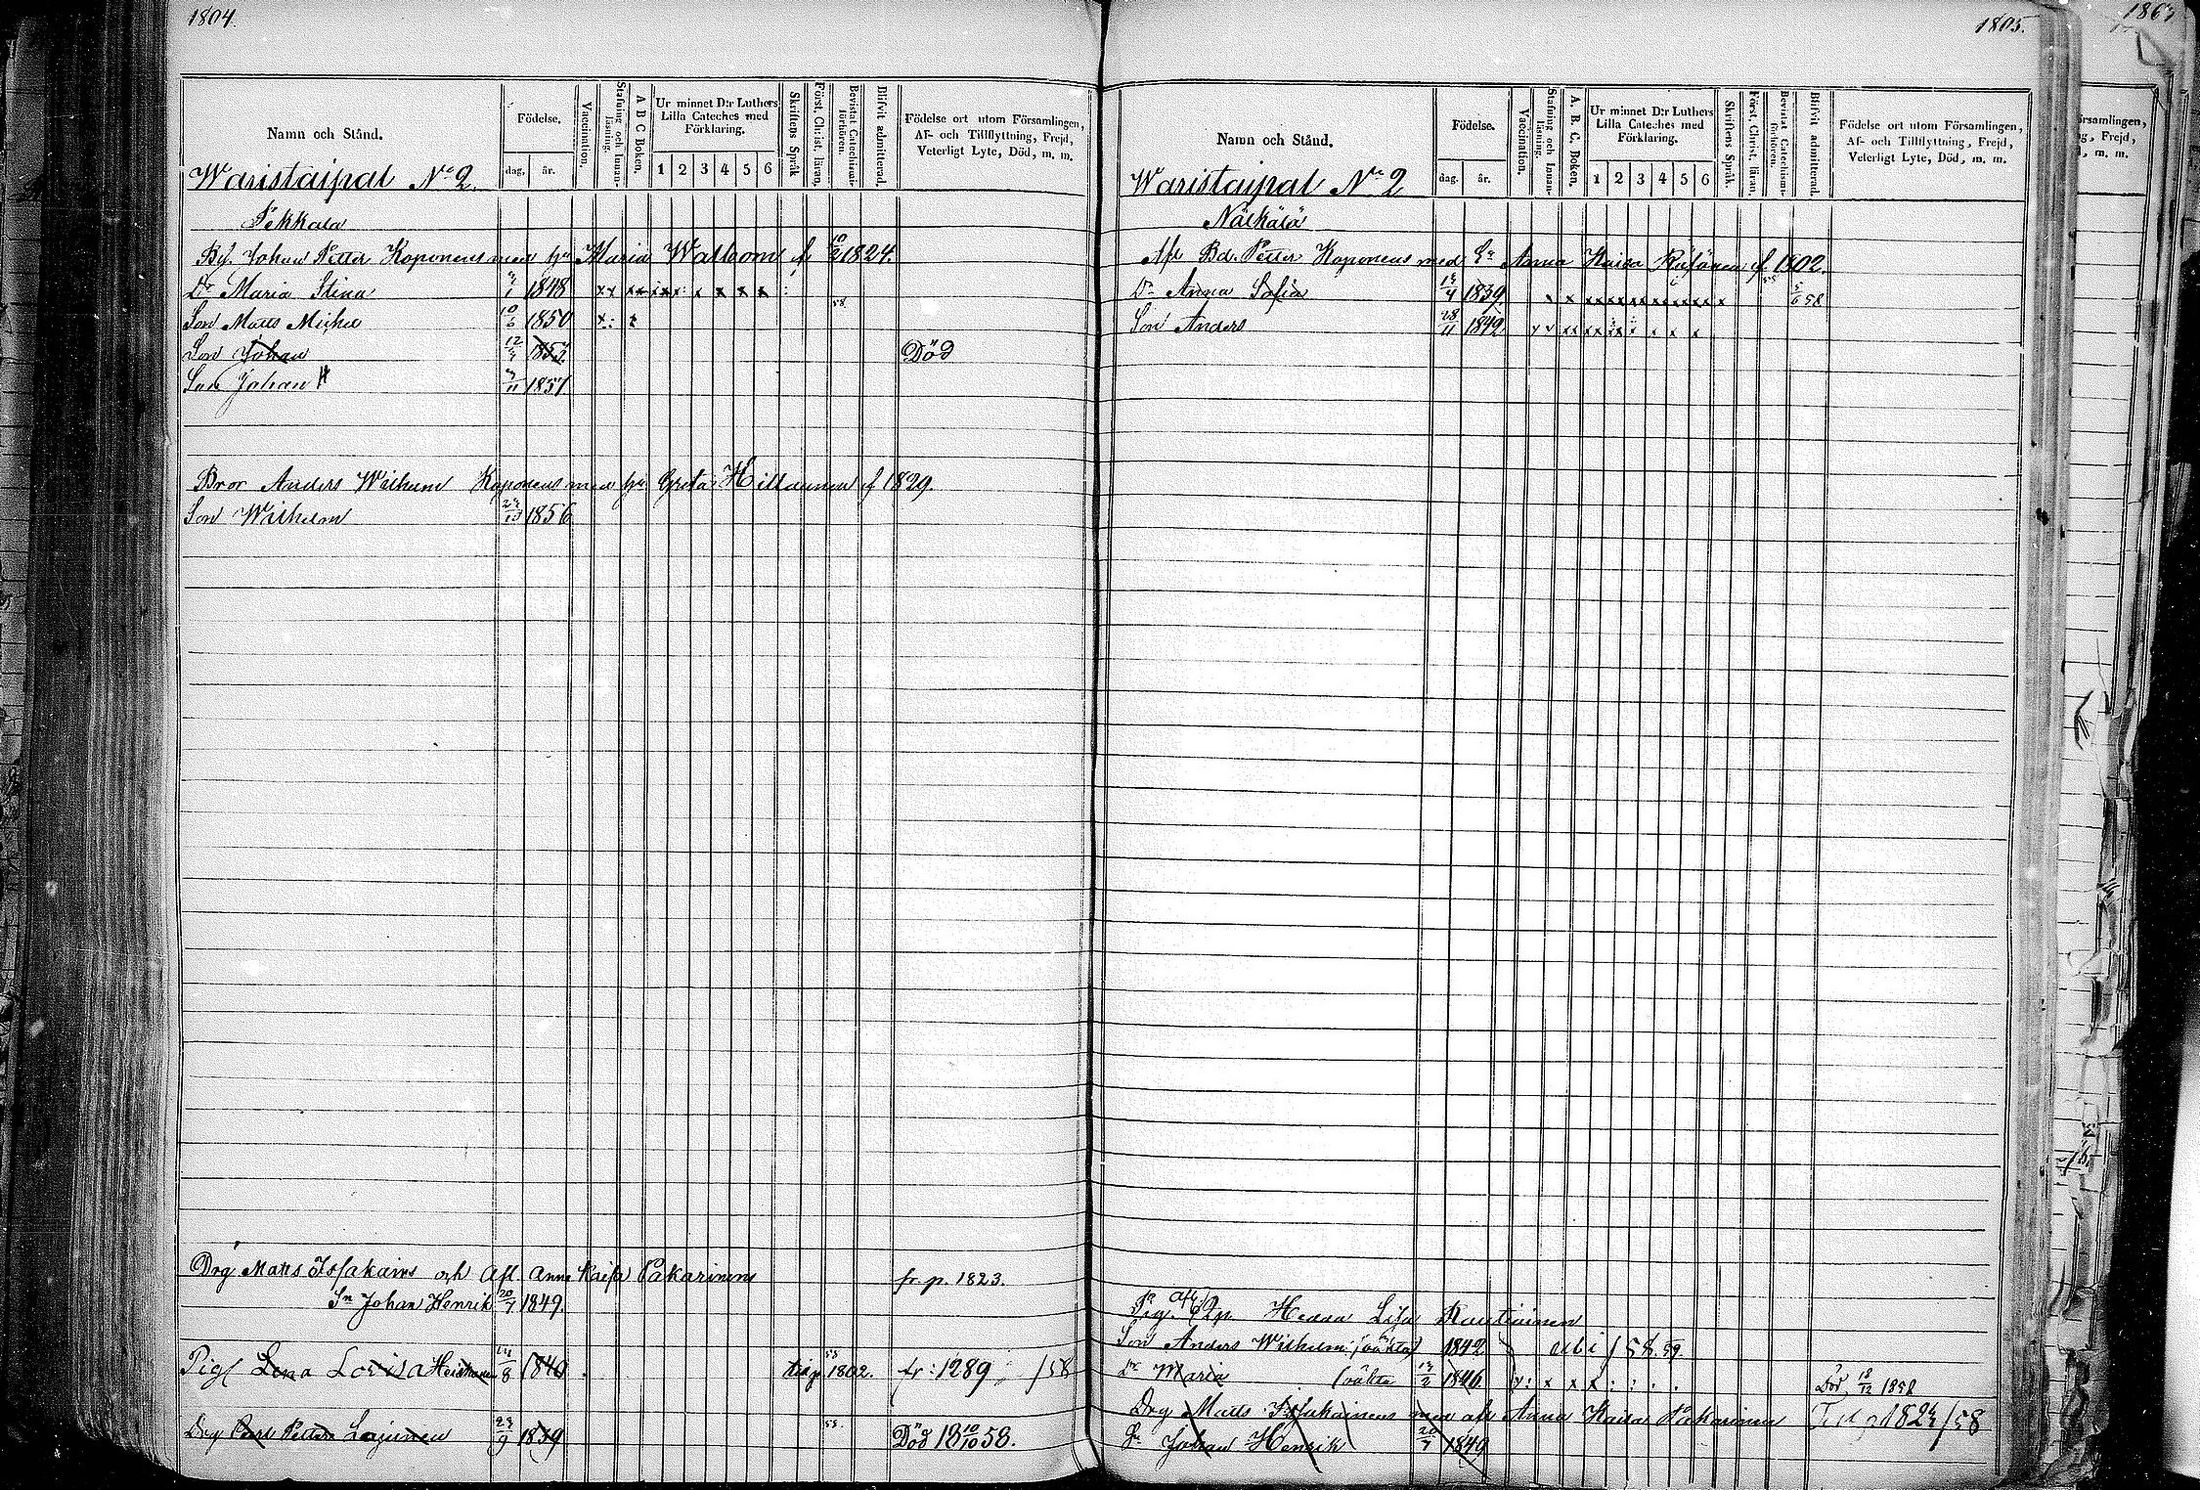 1804.
Namn och Stånd.
Födelse.
dag. år.
Vaccination.
Stafning och Innanläsning.
A B C Boken.
Ur minnet D:r Luthers Lilla Cateches med Förklaring.
1 2 3 4 5 6
Skriftens Språk
Först. Christ. läran.
Bevistat Catechismiförhören.
Blifvit admitterad.
Födelse ort utom Församlingen, Af- och Tillflyttning, Frejd, Veterligt Lyte, Död, m. m.
Waristaipal No 2.
Pekkala
Johan Petter Koponens med hu Maria Watloom f 1824.
Dr Maria Stina 1848
58.
Son Matts Michel 10/6 1850
Son Johan 12/ Död
Son Johan H 1857.
Bror Anders Wilhelm Koponens med hu Greta Hiltunen f 1829.
Son Wilhelm 1856
Drg Matts Issakains och Afl. Anna Kaisa Pakarinens fr p. 1823.
Sn Johan Henrik 20/7 1849.
Pig Lena Lovisa 14/8 1840 1802. fr: 1289 /58
Drg Carl Petter Lajunen 23/9 1839 58. Död 18 10/10 58.
1805.
Namn och Stånd.
Födelse.
dag. år.
Vaccination.
Stafning och Innanläsning.
A. B. C. Boken.
Ur minnet D:r Luthers Lilla Cateches med Förklaring.
1 2 3 4 5 6
Skriftens Språk.
Först. Christ. läran.
Bevistat Catechismiförhören.
Blifvit admitterad.
Födelse ort utom Församlingen, Af- och Tillflyttning, Frejd, Veterligt Lyte, Död, m. m.
Waristaipal No 2
Nälkälä
Afl Bd. Petter Koponens med Anna Kaisa f 1802.
Dr Anna Sofia 1839 5/6 58
Son Anders 28/11 1842
Hedda Lisa Kautiainen
Son Anders Wilhelm (oäkta) 1842 ubi /58. 59.
Dr Maria (oäkta 1846 Död 18/12 1858
Drg Matts Issakainens med afl Anna Kaisa Pakarinen
Johan Henrik 20/7 1849